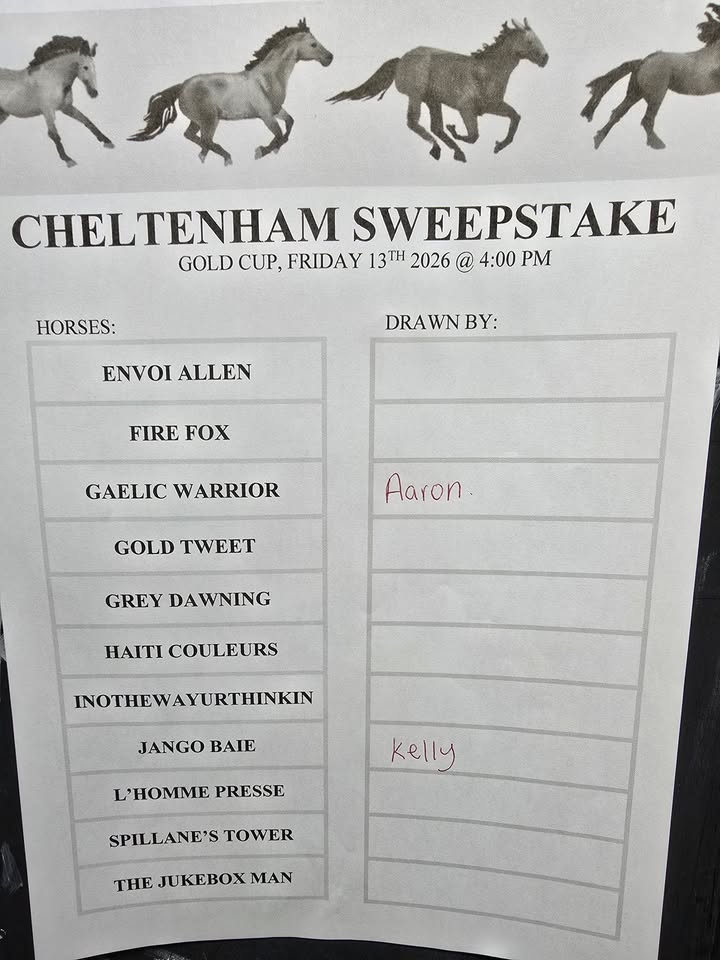 CHELTENHAM SWEEPSTAKE
GOLD CUP, FRIDAY 13TH 2026 @ 4:00 PM
HORSES:
DRAWN BY:
ENVOI ALLEN
FIRE FOX
GAELIC WARRIOR
Aaron.
GOLD TWEET
GREY DAWNING
HAITI COULEURS
INOTHEWAYURTHINKIN
JANGO BAIE
Kelly
L'HOMME PRESSE
SPILLANE'S TOWER
THE JUKEBOX MAN